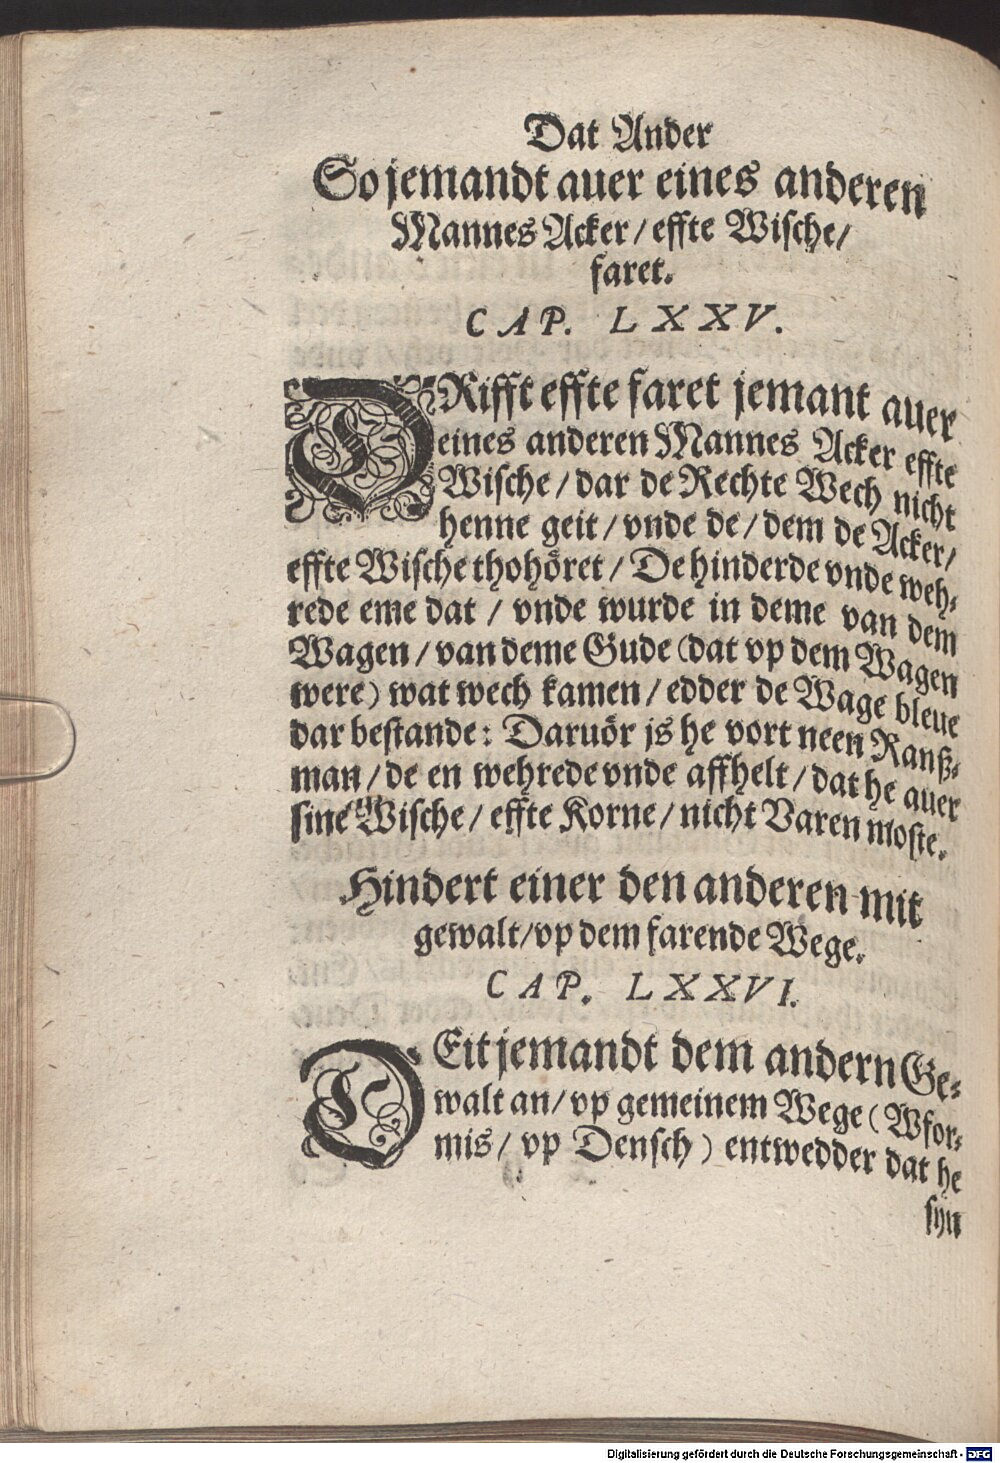 Dat Ander
So jemandt auer eines anderen
Mannes Acker / effte Wische /
faret.
CAP. LXXV.
DRifft effte faret jemant auer
eines anderen Mannes Acker effte
Wische / dar de Rechte Wech nicht
henne geit / vnde de / dem de Acker /
effte Wische thohöret / De hinderde vnde weh⸗
rede eme dat / vnde wurde in deme van dem
Wagen / van deme Gude (dat vp dem Wagen
were) wat wech kamen / edder de Wage bleue
dar bestande: Daruör js he vort neen Ranß⸗
man / de en wehrede vnde affhelt / dat he auer
sine Wische / effte Korne / nicht Varen moste.
Hindert einer den anderen mit
gewalt / vp dem farende Wege.
CAP. LXXVI.
DEit jemandt dem andern Ge⸗
walt an / vp gemeinem Wege (Wfor⸗
mis / vp Densch) entwedder dat he
syn
Digitalisierung gefördert durch die Deutsche Forschungsgemeinschaft - DFG